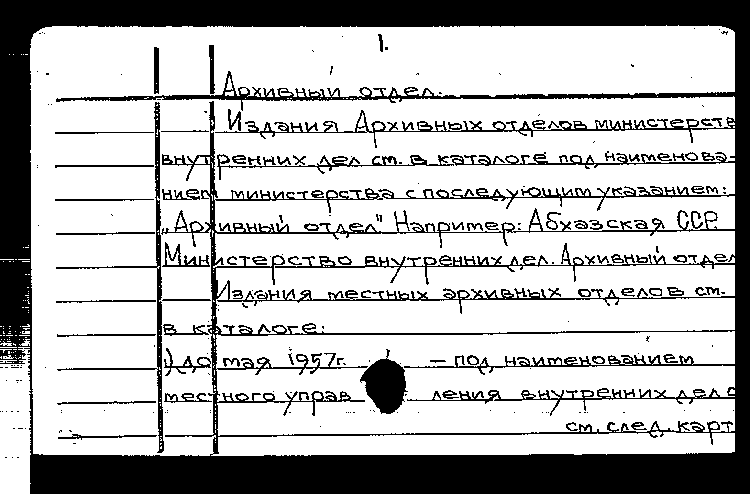 1.
Архивный отдел.
Издания Архивных отделов министерств
внутренних дел см. в каталоге под наименова-
нием министерства с последующим указанием:
„Архивный отдел" Например: Абхазская ССР.
Министерство внутренних дел. Архивный отдел
Издания местных архивных отделов см.
в каталоге:
1) до мая 1957г. — под наименованием
местного управления внутренних дел с
см. след. карт